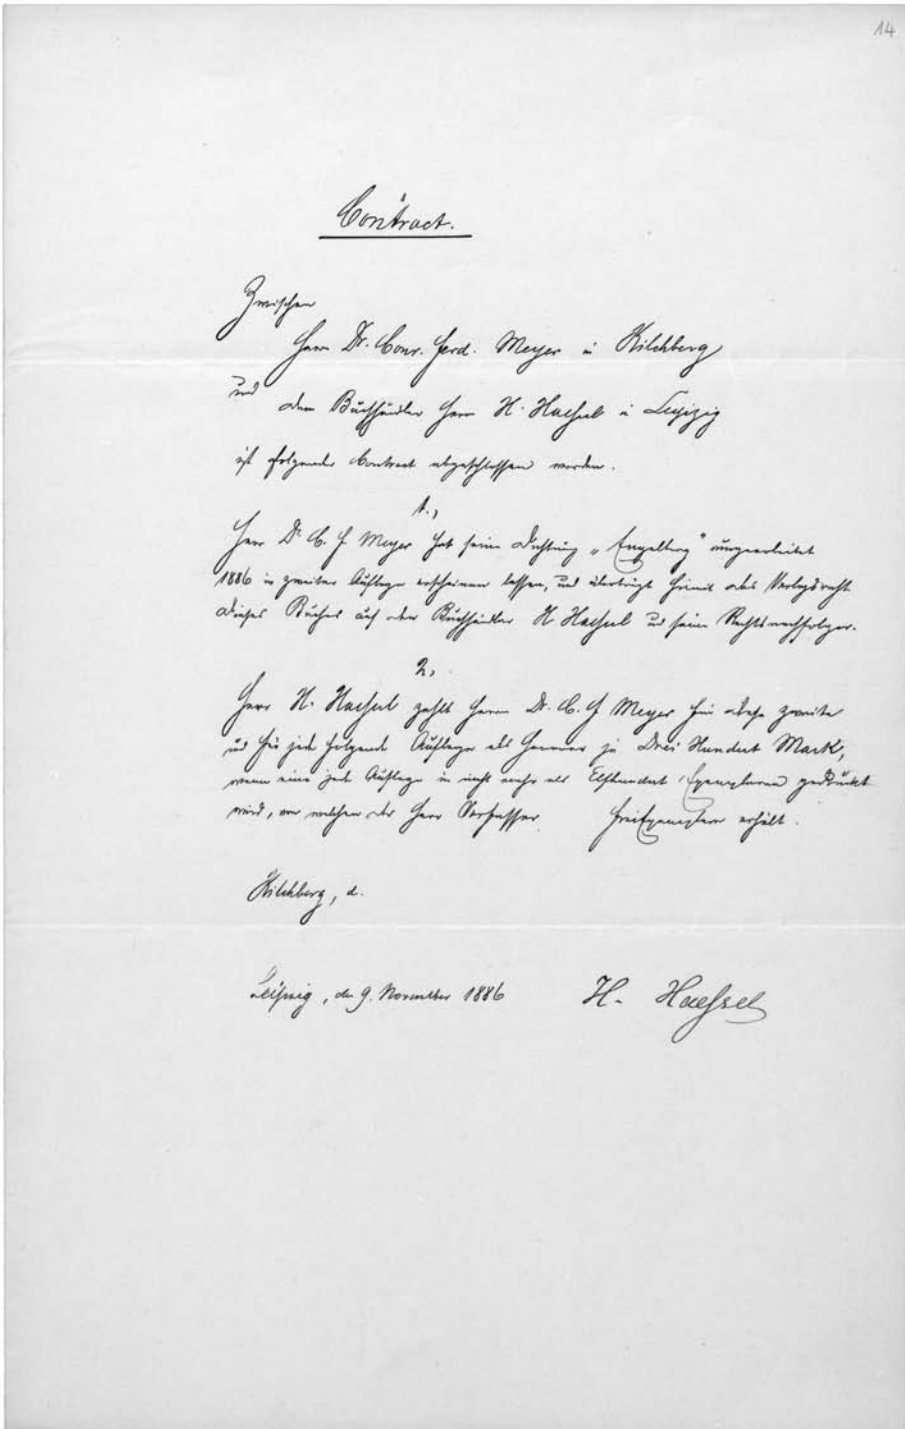 14
Contract.
Zwischen
Herrn Dr. Conr. Ferd. Meyer in Kilchberg
und
dem Buchhändler Herrn H. Haessel in Leipzig
ist folgender Contract abgeschlossen worden.
1.,
Herr Dr. C. F. Meyer hat seine Dichtung „Engelberg" umgearbeitet
1886 in zweiter Auflage erscheinen lassen, und überträgt hiemit das Verlagsrecht
dieses Buches auf den Buchhändler H Haessel und seine Rechtsnachfolger.
2,
Herr H. Haessel zahlt Herrn Dr. C. F Meyer für diese zweite
und für jede folgende Auflage als Honorar je Drei Hundert Mark,
wenn eine jede Auflage in nicht mehr als Elfhundert Exemplaren gedruckt
wird, von welchen der Herr Verfasser Freiexemplare erhält.
Kilchberg, d.
Leipzig, den 9. November 1886
H. Haessel